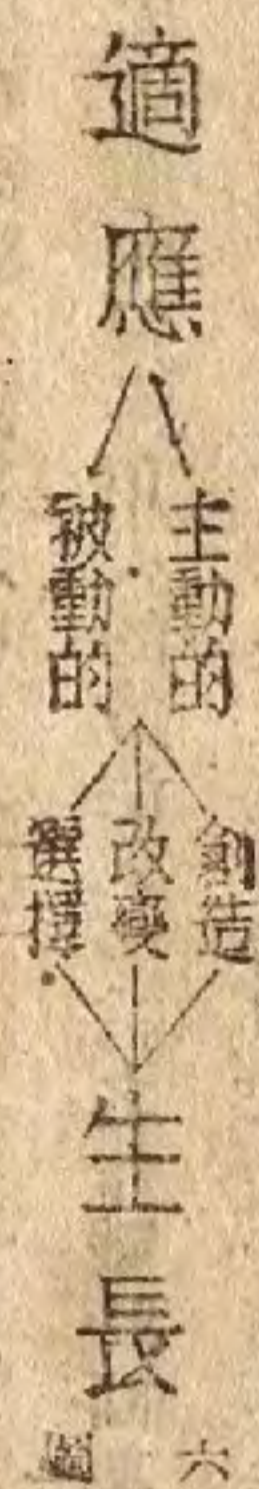 適應
主動的
被動的
創造
改變
選擇
生長
六圖